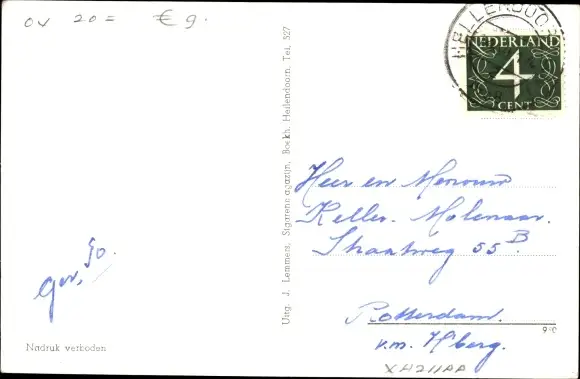 ov 20= € 9.
HELLENDOORN
NEDERLAND
4
CENT
Uitg. J. Lemmers, Sigarenmagazijn, Boekh. Hellendoorn, Tel. 527
Heer en Mevrouw
Keller-Molenaar.
Straatweg 55B.
Rotterdam.
v.m. H'berg.
Nadruk verboden
XH211AA